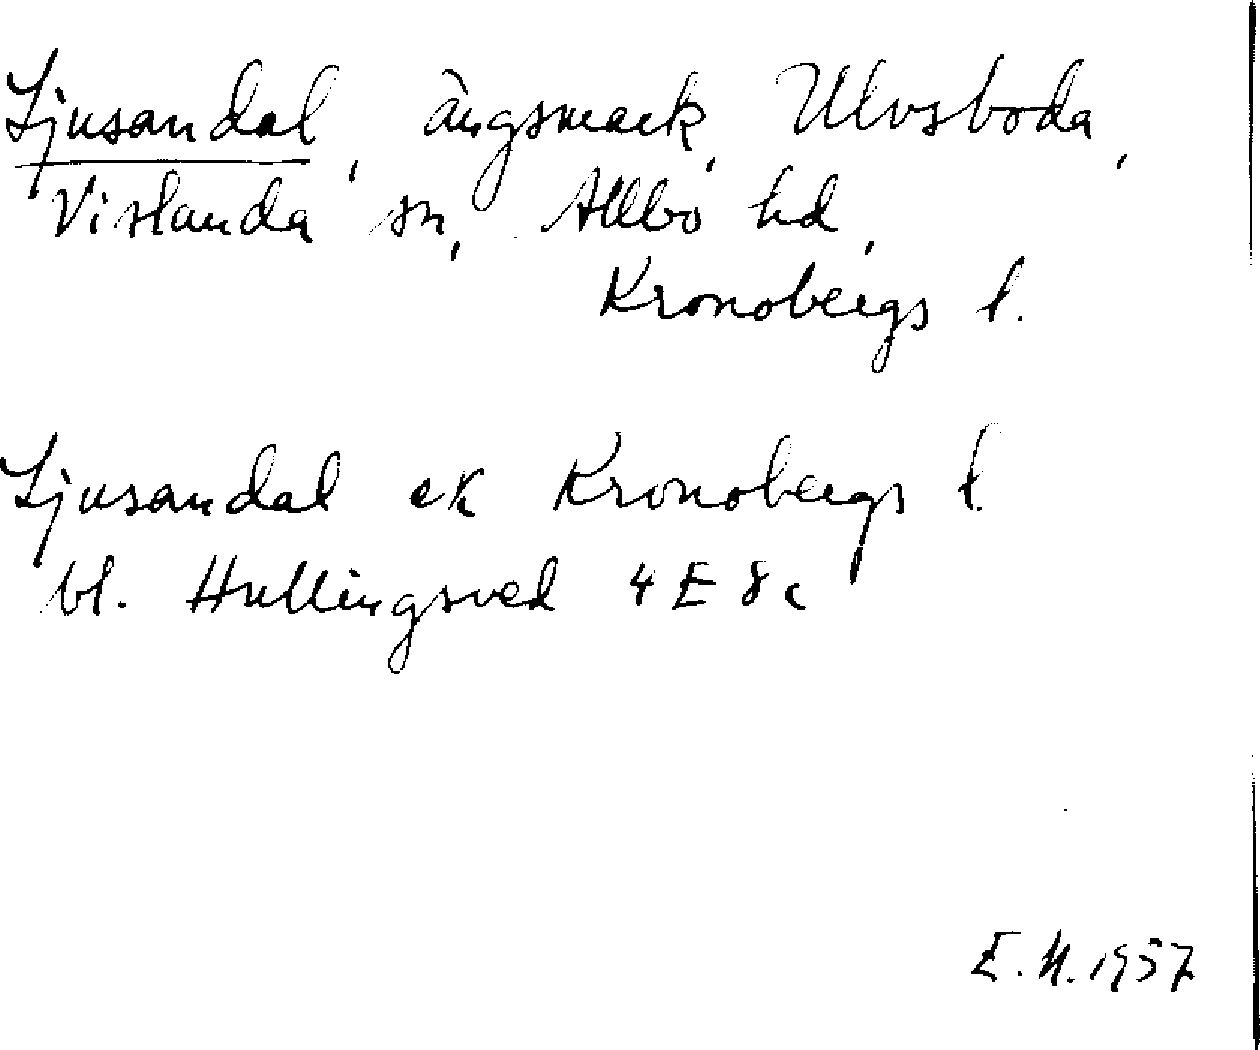 Ljusandal, ängsmark, Ulvsboda,
Vislanda sn, Allbo hd,
Kronobergs l.
Ljusandal ek Kronobergs l.
bl. Hullingsved 4 E 8 c
E. N. 1957